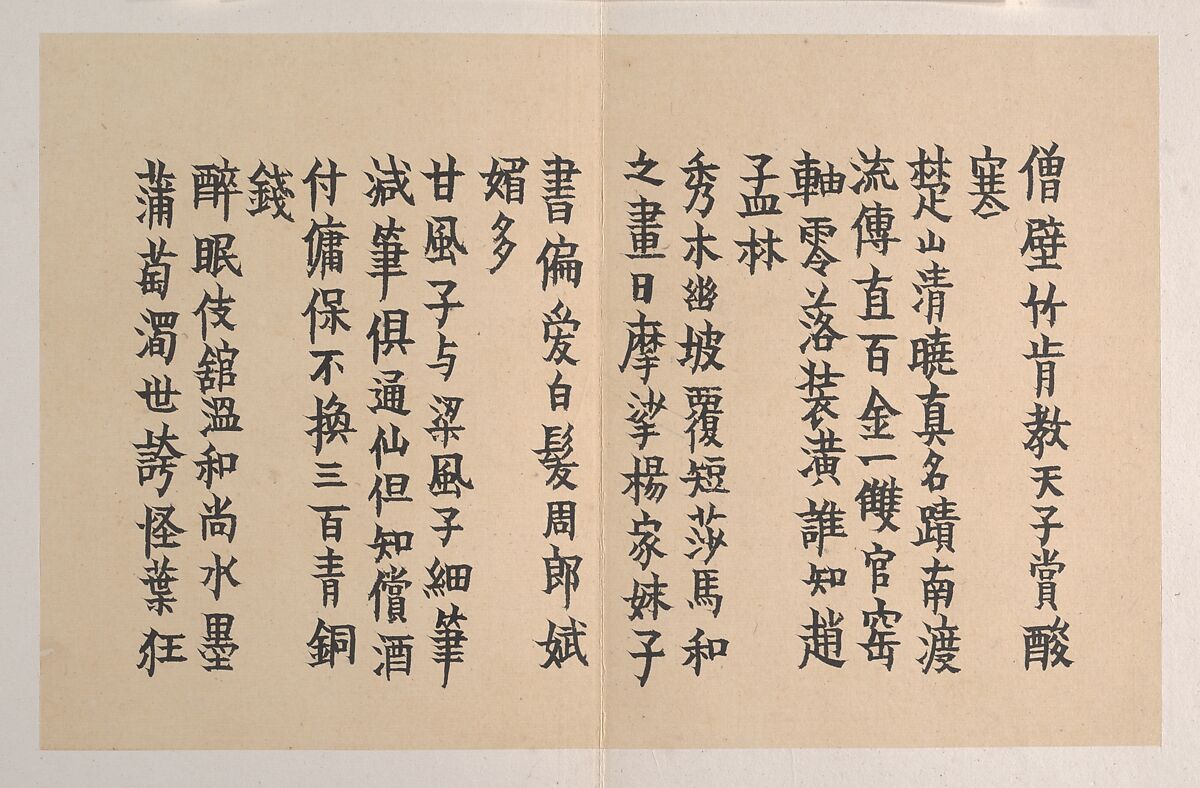 僧壁竹肯教天子賞酸
寒
楚山清曉真名蹟南渡
流傳直百金一雙官窑
軸零落裝潢誰知趙
孟林
秀木幽坡覆短莎馬和
之畫日摩挲楊家妹子
書偏爱白髮周郎娬
媚多
甘風子与梁風子細筆
減筆俱通仙但知償酒
付傭保不換三百青銅
錢
醉眠伎舘溫和尚水墨
蒲萄濁世誇怪葉狂